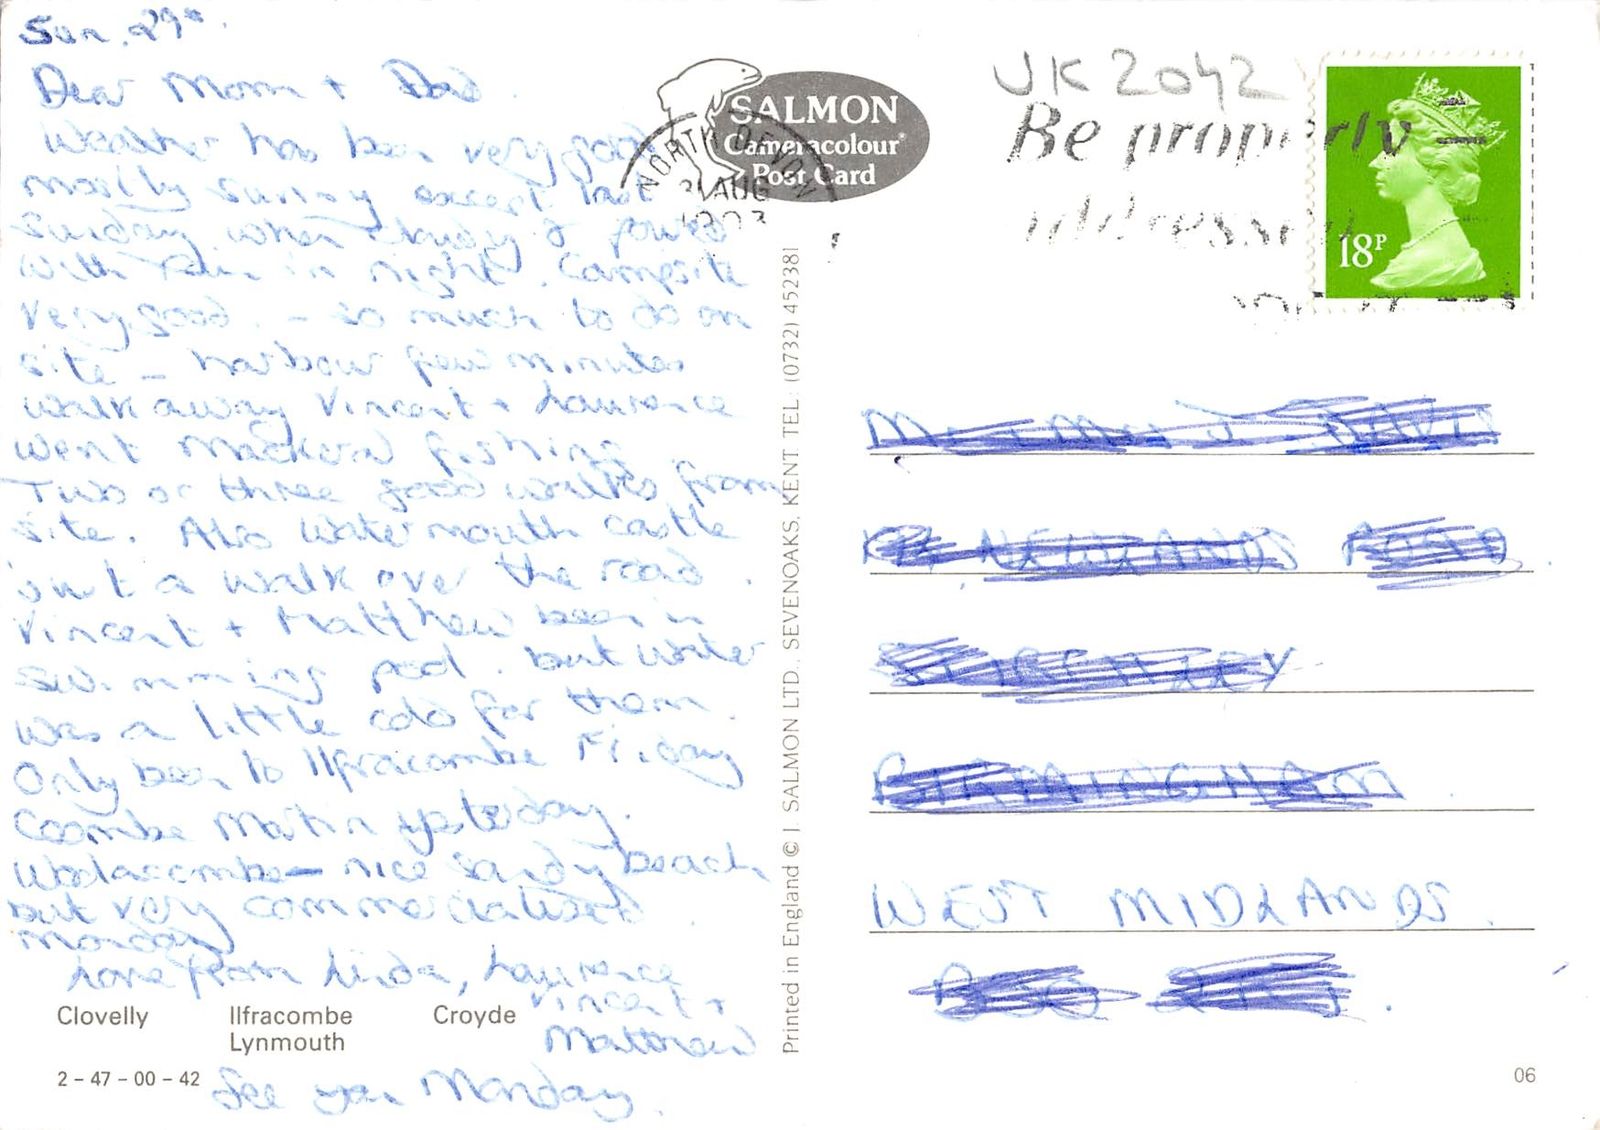 Sun. 29th.
Dear Mom + Dad.
Weather has been very good
mostly sunny except last
Sunday when cloudy & poured
with rain in night. Campsite
very good. - so much to do on
site - harbour few minutes
walk away Vincent + Laurence
went mackeral fishing
Two or three good walks from
site. Also Watermouth castle
just a walk over the road.
Vincent + Matthew been in
swimming pool. but water
was a little cold for them.
Only been to Ilfracombe Friday
Coombe Martin yesterday.
Woolaccombe - nice sandy beach
but very commercialised.
Monday
Love from Linda, Laurence
Vincent +
Matthew
See you Monday.
Clovelly Ilfracombe Croyde
Lynmouth
2 - 47 - 00 - 42
SALMON
Cameracolour®
Post Card
NORTH DEVON
31 AUG
1993
Printed in England © J. SALMON LTD., SEVENOAKS, KENT TEL: (0732) 452381
UK 2042
Be properly
addressed
18P
NEWLANDS ROAD
BIRMINGHAM
WEST MIDLANDS.
06